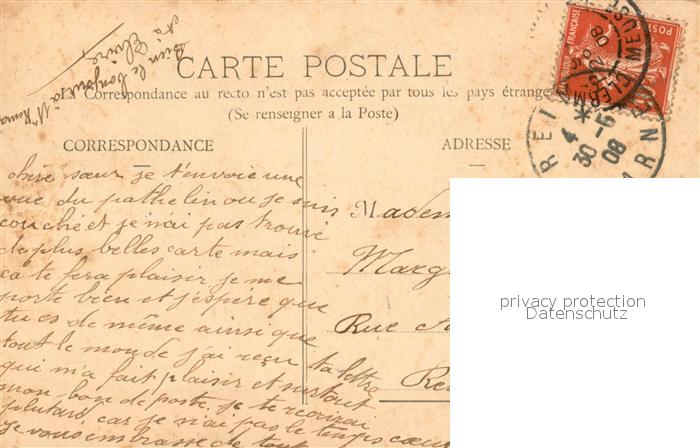 Bien le bonjour à
à Elvire
CARTE POSTALE
La Correspondance au recto n'est pas acceptée par tous les pays étrange
(Se renseigner a la Poste)
CORRESPONDANCE
chère sœur je t'envoie une
vue du pathelin ou je suis
couché et je n'ai pas trouvé
de plus belles carte mais
ça te fera plaisir je me
porte bien et j'espère que
tu es de même ainsi que
tout le monde j'ai reçu ta lettre
qui m'a fait plaisir et surtout
mon bon de poste. je te recrirai
plutard car je n'ai pas le temps
je vous embrasse de tout cœur
ADRESSE
Madem
Marg
Rue
Re
FRANÇAISE
CLERM
MEUSE
REI
4
30-6
08
ARNE
privacy protection
Datenschutz